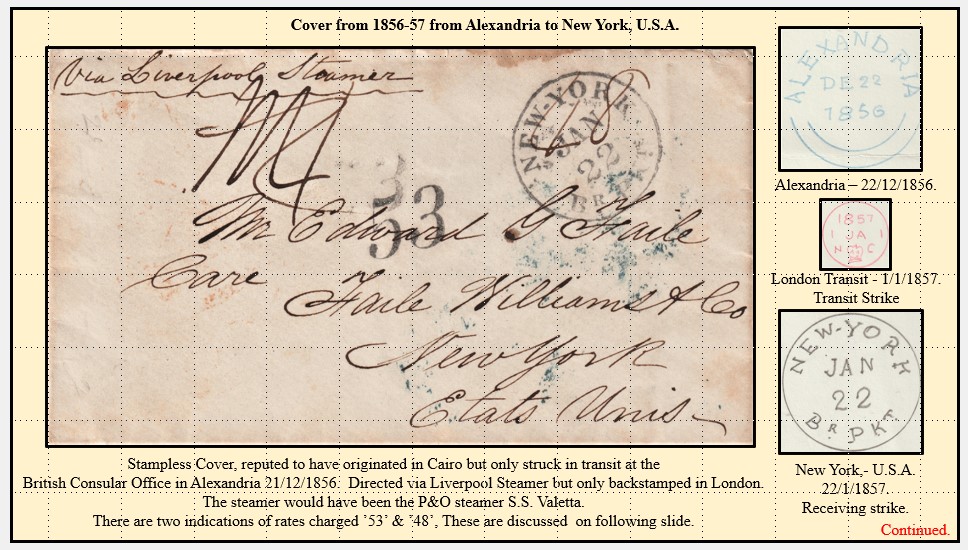 Cover from 1856-57 from Alexandria to New York, U.S.A.
Via Liverpool Steamer
NEW-YORK
JAN
22
BR. PKT
48
53
Mr Edward G Haile
Care
Haile Williams & Co
New York
Etats Unis
ALEXANDRIA
DE 22
1856
Alexandria – 22/12/1856.
1857
1 JA 1
N C
London Transit - 1/1/1857.
Transit Strike
NEW-YORK
JAN
22
BR PKT.
New York,- U.S.A.
22/1/1857.
Receiving strike.
Stampless Cover, reputed to have originated in Cairo but only struck in transit at the
British Consular Office in Alexandria 21/12/1856. Directed via Liverpool Steamer but only backstamped in London.
The steamer would have been the P&O steamer S.S. Valetta.
There are two indications of rates charged '53' & '48', These are discussed on following slide.
Continued.